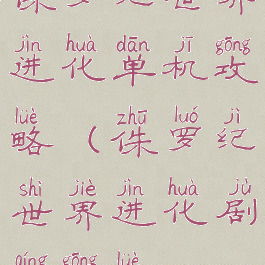 jìn huà dān jī gōng
进化单机攻
lüè zhū luó jì
略（侏罗纪
shì jiè jìn huà jù
世界进化剧
qíng gōng lüè